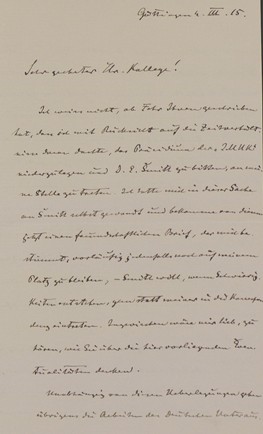 Göttingen 4. III. 15.
Sehr geehrter Hr. Kollege!
Ich weiss nicht, ob Fehr Ihnen geschrieben
hat, dass ich mit Rücksicht auf die Zeitverhält-
nisse daran dachte, das Präsidium der IMUK
niederzulegen und D. E. Smith zu bitten, an mei-
ne Stelle zu treten. Ich hatte mich in dieser Sache
an Smith selbst gewandt und bekomme von diesem
jetzt einen freundschaftlichen Brief, der mich be-
stimmt, vorläufig jedenfalls noch auf meinem
Platz zu bleiben, Smith wohl, wenn Schwierig-
keiten entstehen, gern statt meiner in die Korrespon-
denz eintreten. Ingwischen wäre mir lieb, zu
hören, wie Sie über die hier vorliegenden Even-
tualitäten denken.
Unabhängig von diesen Ueberlegungen gehen
übrigens die Arbeiten des Deutschen Unteraus-